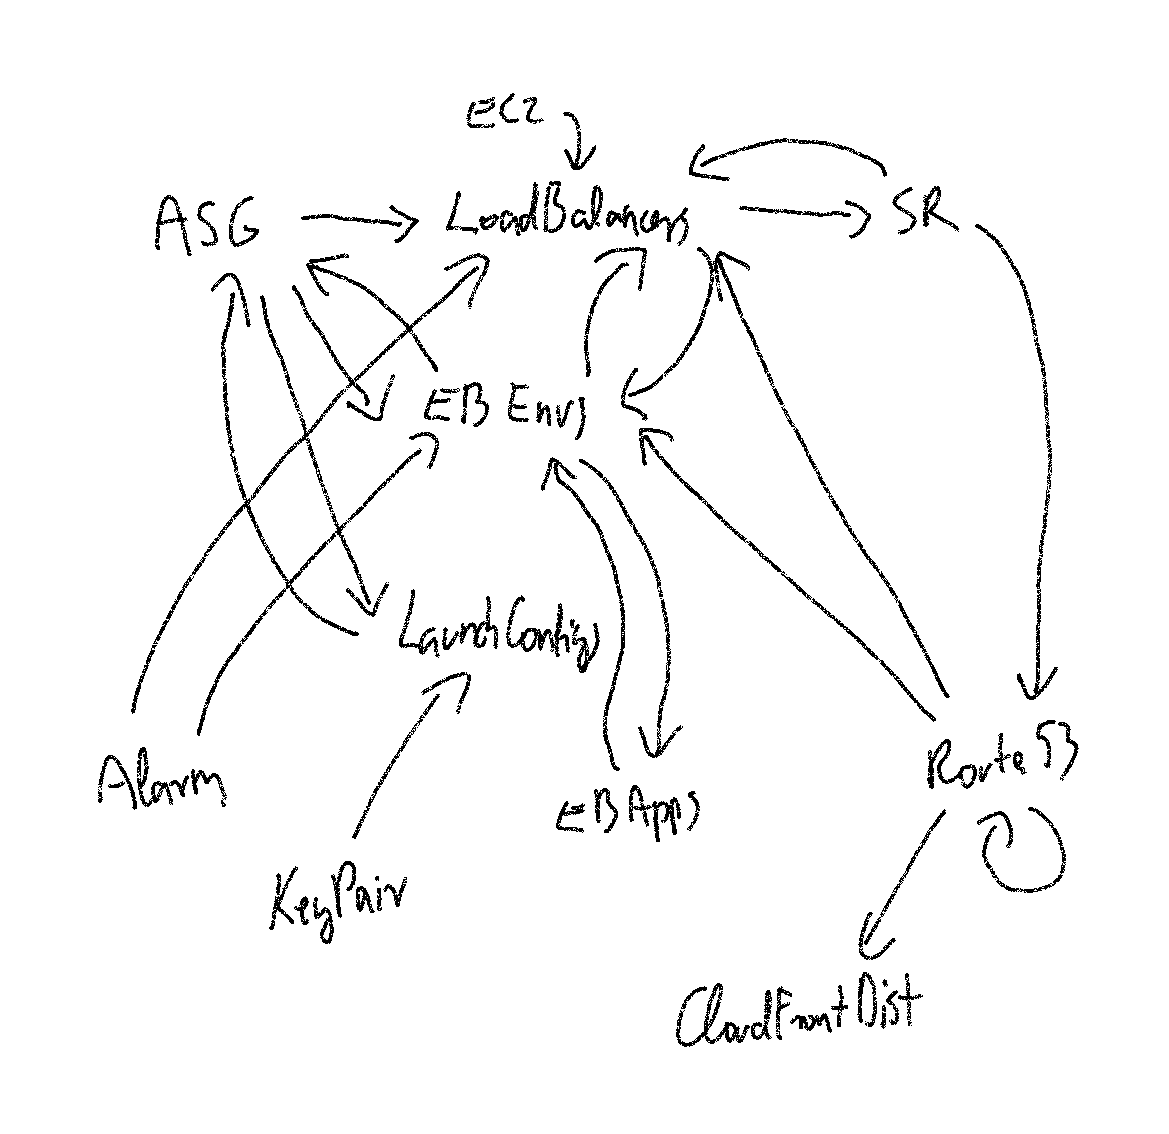 EC2
ASG
LoadBalancers
SR
EB Envs
LaunchConfigs
Alarm
Route 53
EB Apps
KeyPair
CloudFrontDist